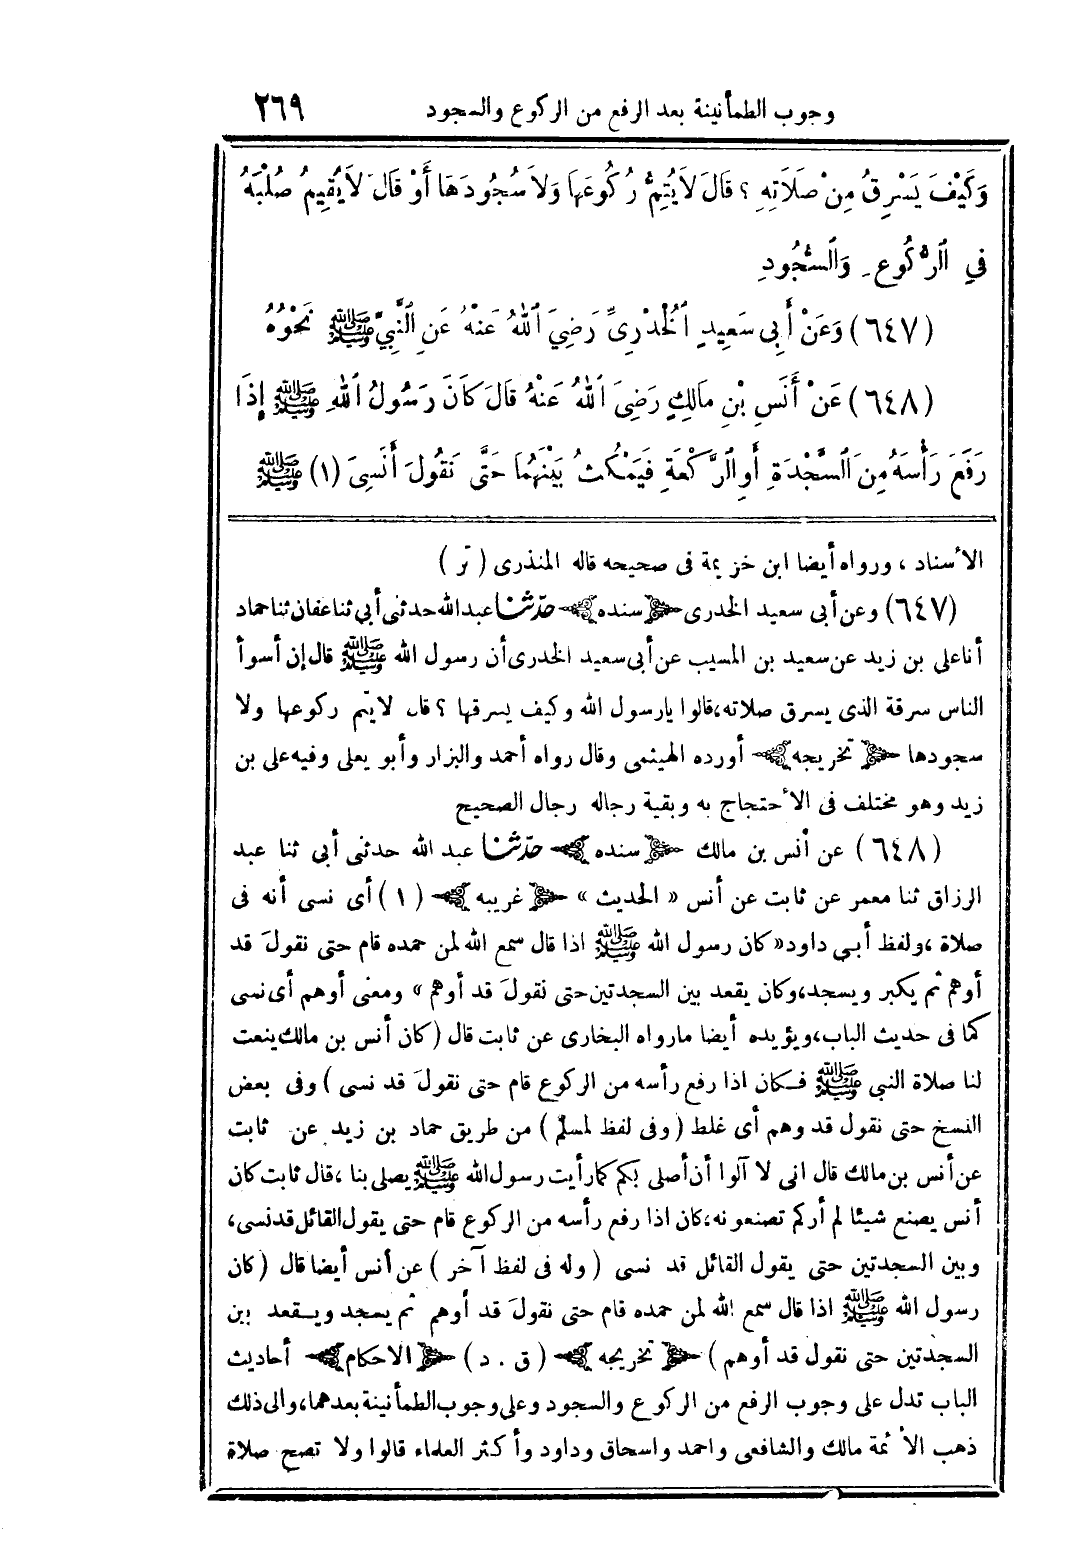 وجوب الطمأنينة بعد الرفع من الركوع والسجود ٢٦٩
وَكَيْفَ يَسْرِقُ مِنْ صَلَاتِهِ ؟ قَالَ لَا يُتِمُّ رُكُوعَهَا وَلَا سُجُودَهَا أَوْ قَالَ لَا يُقِيمُ صُلْبَهُ
فِي الرُّكُوعِ وَالسُّجُودِ
(٦٤٧) وَعَنْ أَبِى سَعِيدٍ الْخُدْرِىِّ رَضِيَ اللهُ عَنْهُ عَنِ النَّبِيِّ ﷺ نَحْوُهُ
(٦٤٨) عَنْ أَنَسِ بْنِ مَالِكٍ رَضِيَ اللهُ عَنْهُ قَالَ كَانَ رَسُولُ اللهِ ﷺ إِذَا
رَفَعَ رَأْسَهُ مِنَ السَّجْدَةِ أَوِ الرَّكْعَةِ فَيَمْكُثُ بَيْنَهُمَا حَتَّى نَقُولَ أَنَسِىَ (١) ﷺ
الأسناد ، ورواه أيضا ابن خزيمة فى صحيحه قاله المنذرى ( تر )
(٦٤٧) وعن أبى سعيد الخدرى ﴿سنده﴾ حدّثنا عبد الله حدثنى أبي ثنا عفان ثنا حماد
أنا على بن زيد عن سعيد بن المسيب عن أبى سعيد الخدرى أن رسول الله ﷺ قال إن أسوأ
الناس سرقة الذى يسرق صلاته، قالوا يارسول الله وكيف يسرقها ؟ قال لايتم ركوعها ولا
سجودها ﴿تخريجه﴾ أورده الهيثمى وقال رواه أحمد والبزار وأبو يعلى وفيه على بن
زيد وهو مختلف فى الأحتجاج به وبقية رجاله رجال الصحيح
(٦٤٨) عن أنس بن مالك ﴿سنده﴾ حدّثنا عبد الله حدثنى أبى ثنا عبد
الرزاق ثنا معمر عن ثابت عن أنس « الحديث » ﴿غريبه﴾ (١) أى نسى أنه فى
صلاة ، ولفظ أبى داود « كان رسول الله ﷺ اذا قال سمع الله لمن حمده قام حتى نقولَ قد
أوهم ثم يكبر ويسجد، وكان يقعد بين السجدتين حتى نقولَ قد أوهم » ومعنى أوهم أى نسى
كما فى حديث الباب، ويؤيده أيضا مارواه البخارى عن ثابت قال (كان أنس بن مالك ينعت
لنا صلاة النبي ﷺ فكان اذا رفع رأسه من الركوع قام حتى نقولَ قد نسى ) وفى بعض
النسخ حتى نقول قد وهم أى غلط ( وفى لفظ لمسلم ) من طريق حماد بن زيد عن ثابت
عن أنس بن مالك قال انى لا آلوا أن أصلى بكم كما رأيت رسول الله ﷺ يصلى بنا ، قال ثابت كان
أنس يصنع شيئا لم أركم تصنعونه، كان اذا رفع رأسه من الركوع قام حتى يقول القائل قد نسى،
وبين السجدتين حتى يقول القائل قد نسى ( وله فى لفظ آخر ) عن أنس أيضا قال (كان
رسول الله ﷺ اذا قال سمع الله لمن حمده قام حتى نقولَ قد أوهم ثم يسجد ويقعد بين
السجدتين حتى نقول قد أوهم ) ﴿تخريجه﴾ ( ق . د ) ﴿الاحكام﴾ أحاديث
الباب تدل على وجوب الرفع من الركوع والسجود وعلى وجوب الطمأنينة بعدهما، والى ذلك
ذهب الأئمة مالك والشافعى واحمد واسحاق وداود وأكثر العلماء قالوا ولا تصح صلاة